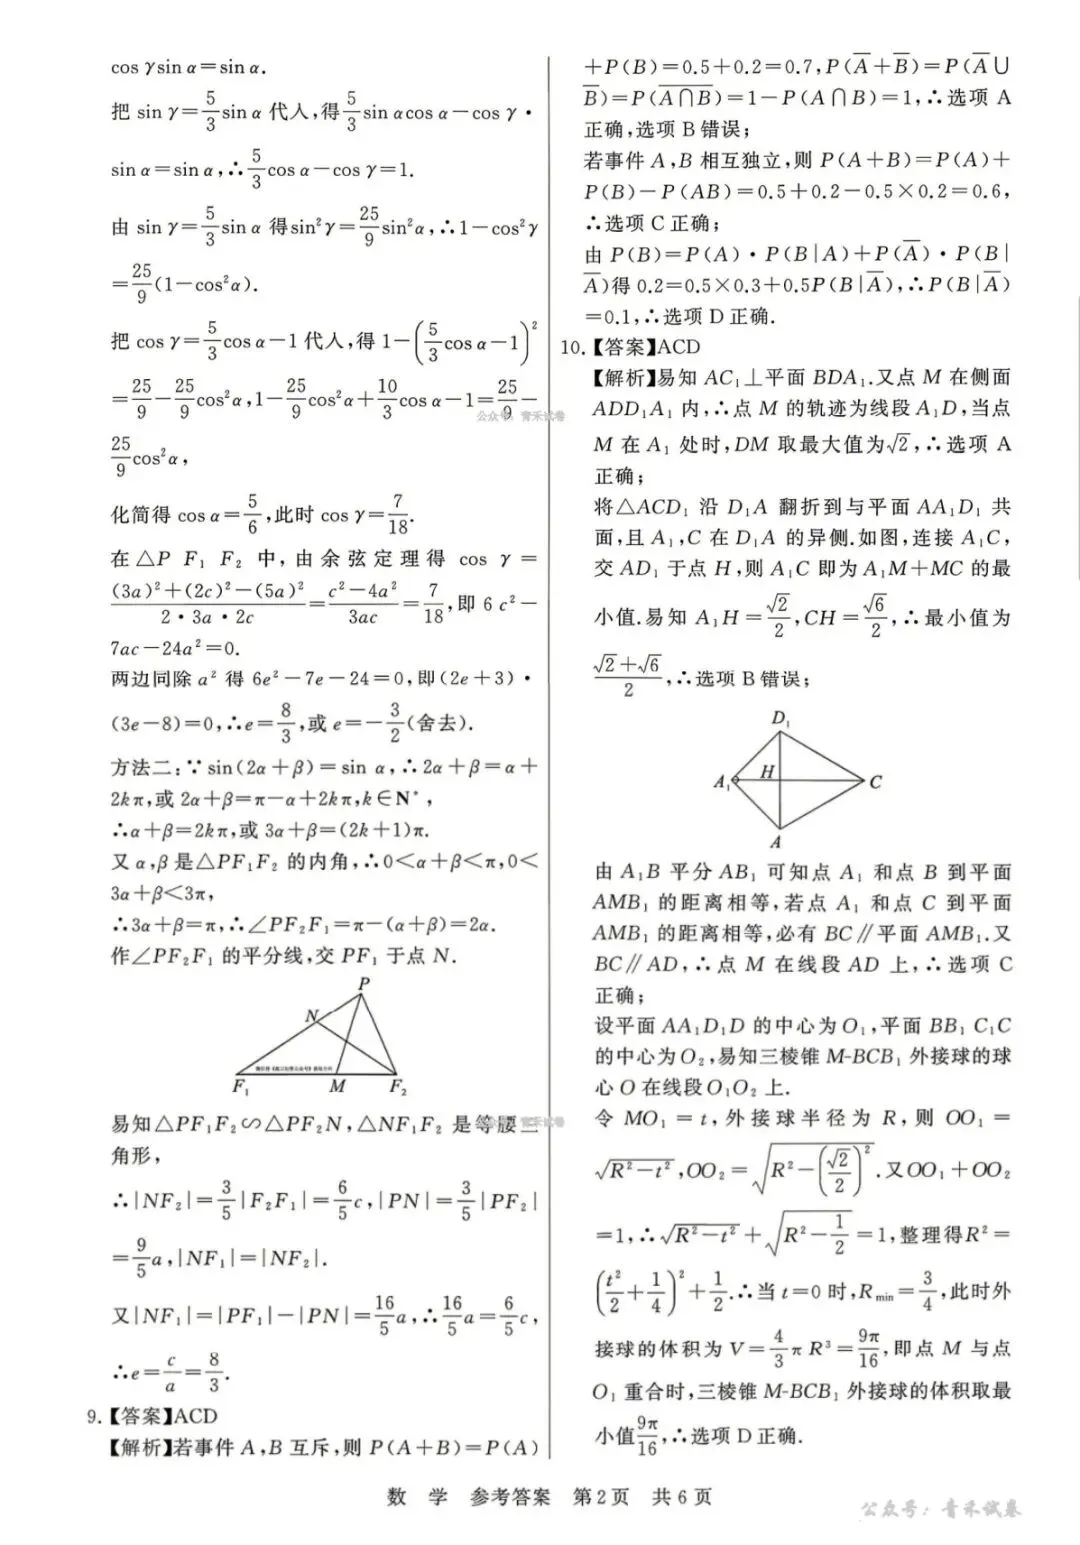 cos γsin α=sin α.
把 sin γ=5/3 sin α 代入,得 5/3 sin αcos α-cos γ·
sin α=sin α,∴5/3 cos α-cos γ=1.
由 sin γ=5/3 sin α 得sin²γ=25/9 sin²α,∴1-cos²γ
=25/9(1-cos²α).
把 cos γ=5/3 cos α-1 代入,得 1-(5/3 cos α-1)²
=25/9-25/9 cos²α,1-25/9 cos²α+10/3 cos α-1=25/9-
25/9 cos²α,
化简得 cos α=5/6,此时 cos γ=7/18.
在 △P F₁ F₂ 中,由余弦定理得 cos γ=
((3a)²+(2c)²-(5a)²)/(2·3a·2c)=(c²-4a²)/(3ac)=7/18,即 6c²-
7ac-24a²=0.
两边同除 a² 得 6e²-7e-24=0,即(2e+3)·
(3e-8)=0,∴e=8/3,或 e=-3/2(舍去).
方法二:∵sin(2α+β)=sin α,∴2α+β=α+
2kπ,或 2α+β=π-α+2kπ,k∈N*,
∴α+β=2kπ,或 3α+β=(2k+1)π.
又 α,β 是△PF₁F₂ 的内角,∴0<α+β<π,0<
3α+β<3π,
∴3α+β=π,∴∠PF₂F₁=π-(α+β)=2α.
作∠PF₂F₁ 的平分线,交 PF₁ 于点 N.
P
N
F₁ M F₂
易知△PF₁F₂∽△PF₂N,△NF₁F₂ 是等腰三
角形,
∴|NF₂|=3/5|F₂F₁|=6/5 c,|PN|=3/5|PF₂|
=9/5 a,|NF₁|=|NF₂|.
又|NF₁|=|PF₁|-|PN|=16/5 a,∴16/5 a=6/5 c,
∴e=c/a=8/3.
9.【答案】ACD
【解析】若事件 A,B 互斥,则 P(A+B)=P(A)
+P(B)=0.5+0.2=0.7,P(A̅+B̅)=P(A̅∪
B̅)=P(A̅∩̅B̅)=1-P(A∩B)=1,∴选项 A
正确,选项 B 错误;
若事件 A,B 相互独立,则 P(A+B)=P(A)+
P(B)-P(AB)=0.5+0.2-0.5×0.2=0.6,
∴选项 C 正确;
由 P(B)=P(A)·P(B|A)+P(A̅)·P(B|
A̅)得 0.2=0.5×0.3+0.5P(B|A̅),∴P(B|A̅)
=0.1,∴选项 D 正确.
10.【答案】ACD
【解析】易知 AC₁⊥平面 BDA₁.又点 M 在侧面
ADD₁A₁ 内,∴点 M 的轨迹为线段 A₁D,当点
M 在 A₁ 处时,DM 取最大值为√2,∴选项 A
正确;
将△ACD₁ 沿 D₁A 翻折到与平面 AA₁D₁ 共
面,且 A₁,C 在 D₁A 的异侧.如图,连接 A₁C,
交 AD₁ 于点 H,则 A₁C 即为 A₁M+MC 的最
小值.易知 A₁H=√2/2,CH=√6/2,∴最小值为
(√2+√6)/2,∴选项 B 错误;
D₁
A₁ H C
A
由 A₁B 平分 AB₁ 可知点 A₁ 和点 B 到平面
AMB₁ 的距离相等,若点 A₁ 和点 C 到平面
AMB₁ 的距离相等,必有 BC∥平面 AMB₁.又
BC∥AD,∴点 M 在线段 AD 上,∴选项 C
正确;
设平面 AA₁D₁D 的中心为 O₁,平面 BB₁C₁C
的中心为 O₂,易知三棱锥 M-BCB₁ 外接球的球
心 O 在线段 O₁O₂ 上.
令 MO₁=t,外接球半径为 R,则 OO₁=
√(R²-t²),OO₂=√(R²-(√2/2)²).又OO₁+OO₂
=1,∴√(R²-t²)+√(R²-1/2)=1,整理得R²=
(t²/2+1/4)²+1/2.∴当 t=0 时,Rmin=3/4,此时外
接球的体积为 V=4/3 πR³=9π/16,即点 M 与点
O₁ 重合时,三棱锥 M-BCB₁ 外接球的体积取最
小值9π/16,∴选项 D 正确.
数 学 参考答案 第2页 共6页
公众号:青禾试卷